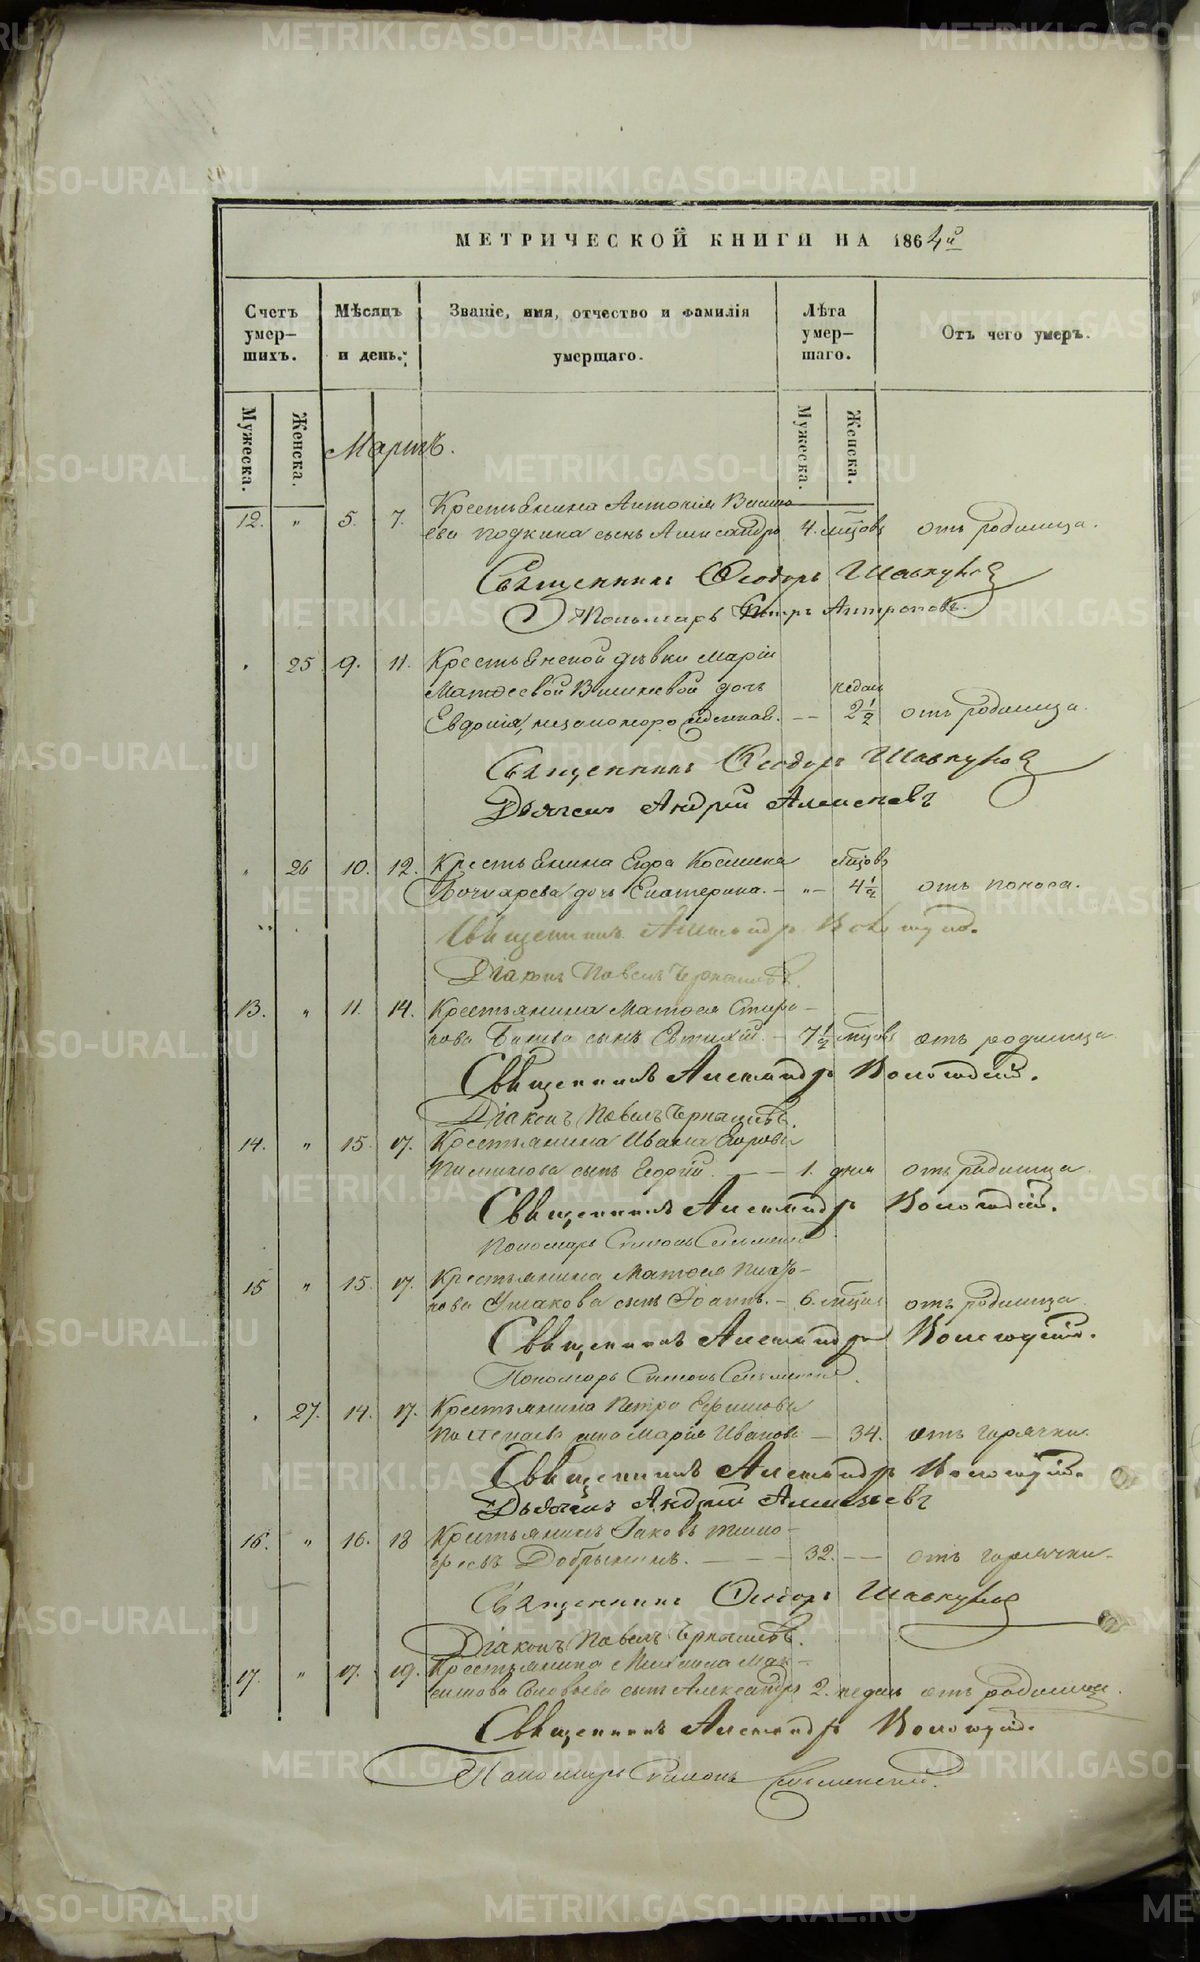 МЕТРИЧЕСКОЙ КНИГИ НА 1864й
Счетъ умер-шихъ.
Мѣсяцъ и день.
Званіе, имя, отчество и фамилія умершаго.
Лѣта умер-шаго.
Отъ чего умеръ.
Мужеска.
Женска.
Мужеска.
Женска.
Мартъ.
Крестьянина Антонія
12. " 5. 7. сынъ Александръ 4. мцовъ отъ родимца.
Священникъ Ѳеодоръ Шавкуновъ
Пономарь Петръ Антроповъ.
25 9. 11. Крестьянской дѣвки Маріи
недѣль
Евдокія, незаконорожденная. 2½ отъ родимца.
Священникъ Ѳеодоръ Шавкуновъ
Дьячекъ Андрей Алексѣевъ
26 10. 12. Крестьянина Егора Козмина мцовъ
Бочкарева дочь Екатерина. — " — 4½ отъ поноса.
Священникъ Александръ Вологодскій.
Діаконъ Павелъ Чернышевъ.
13. " 11. 14. Крестьянина Матѳея Спиро-
нова сынъ Евтихій. — 7½ мцовъ отъ родимца
Священникъ Александръ Вологодскій.
Діаконъ Павелъ Чернышевъ.
14. " 15. 17. Крестьянина Ивана Егорова
сынъ Георгій. — 1. дня отъ родимца.
Священникъ Александръ Вологодскій.
Пономарь Симонъ
15 " 15. 17. Крестьянина Матѳея
Ушакова сынъ Іоаннъ. — 6. мцевъ отъ родимца
Священникъ Александръ Вологодскій.
Пономарь Симонъ
27. 14. 17. Крестьянина Петра Ефимова
жена Марія Иванова — 34. отъ горячки.
Священникъ Александръ Вологодскій.
Дьячекъ Андрей Алексѣевъ
16. " 16. 18 Крестьянинъ Іаковъ Тимо-
феевъ Добрынинъ. — 32. — отъ горячки.
Священникъ Ѳеодоръ Шавкуновъ
Діаконъ Павелъ Чернышевъ.
17. " 17. 19. Крестьянина Михаила Мак-
симова Соловьева сынъ Александръ 2. недѣль отъ родимца.
Священникъ Александръ Вологодскій.
Пономарь Симонъ
METRIKI.GASO-URAL.RU